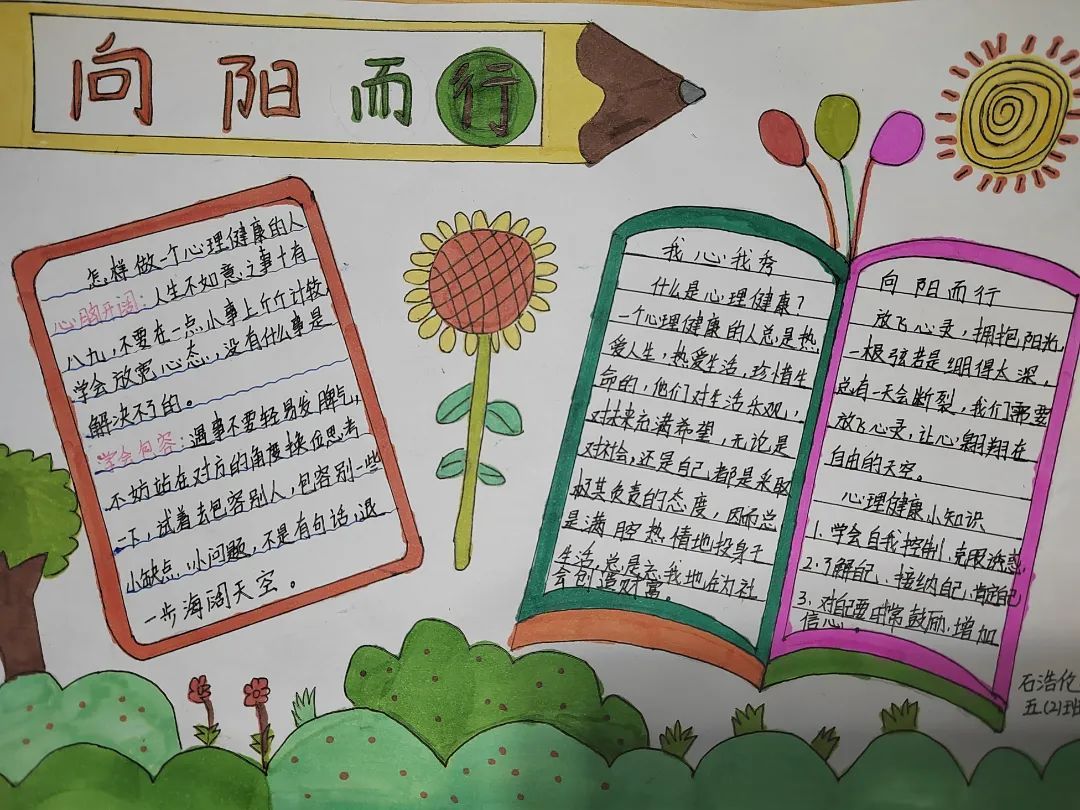 向阳而行
怎样做一个心理健康的人
心胸开阔：人生不如意之事十有
八九，不要在一点小事上斤斤计较，
学会放宽心态，没有什么事是
解决不了的。
学会包容：遇事不要轻易发脾气，
不妨站在对方的角度换位思考
一下，试着去包容别人，包容别一些
小缺点，小问题，不是有句话，退
一步海阔天空。
我心我秀
什么是心理健康？
一个心理健康的人总是热
爱人生，热爱生活，珍惜生
命的，他们对生活乐观，
对未来充满希望，无论是
对社会，还是自己都是采取
极其负责的态度，因而总
是满腔热情地投身于
生活，总是忘我地在为社
会创造财富。
向阳而行
放飞心灵，拥抱阳光，
一根弦若是绷得太深，
总有一天会断裂，我们都要
放飞心灵，让心翱翔在
自由的天空。
心理健康小知识
1.学会自我控制、克服诱惑
2.了解自己、接纳自己、肯定自己
3、对自己要时常鼓励、增加
信心。
石浩伦
五(2)班